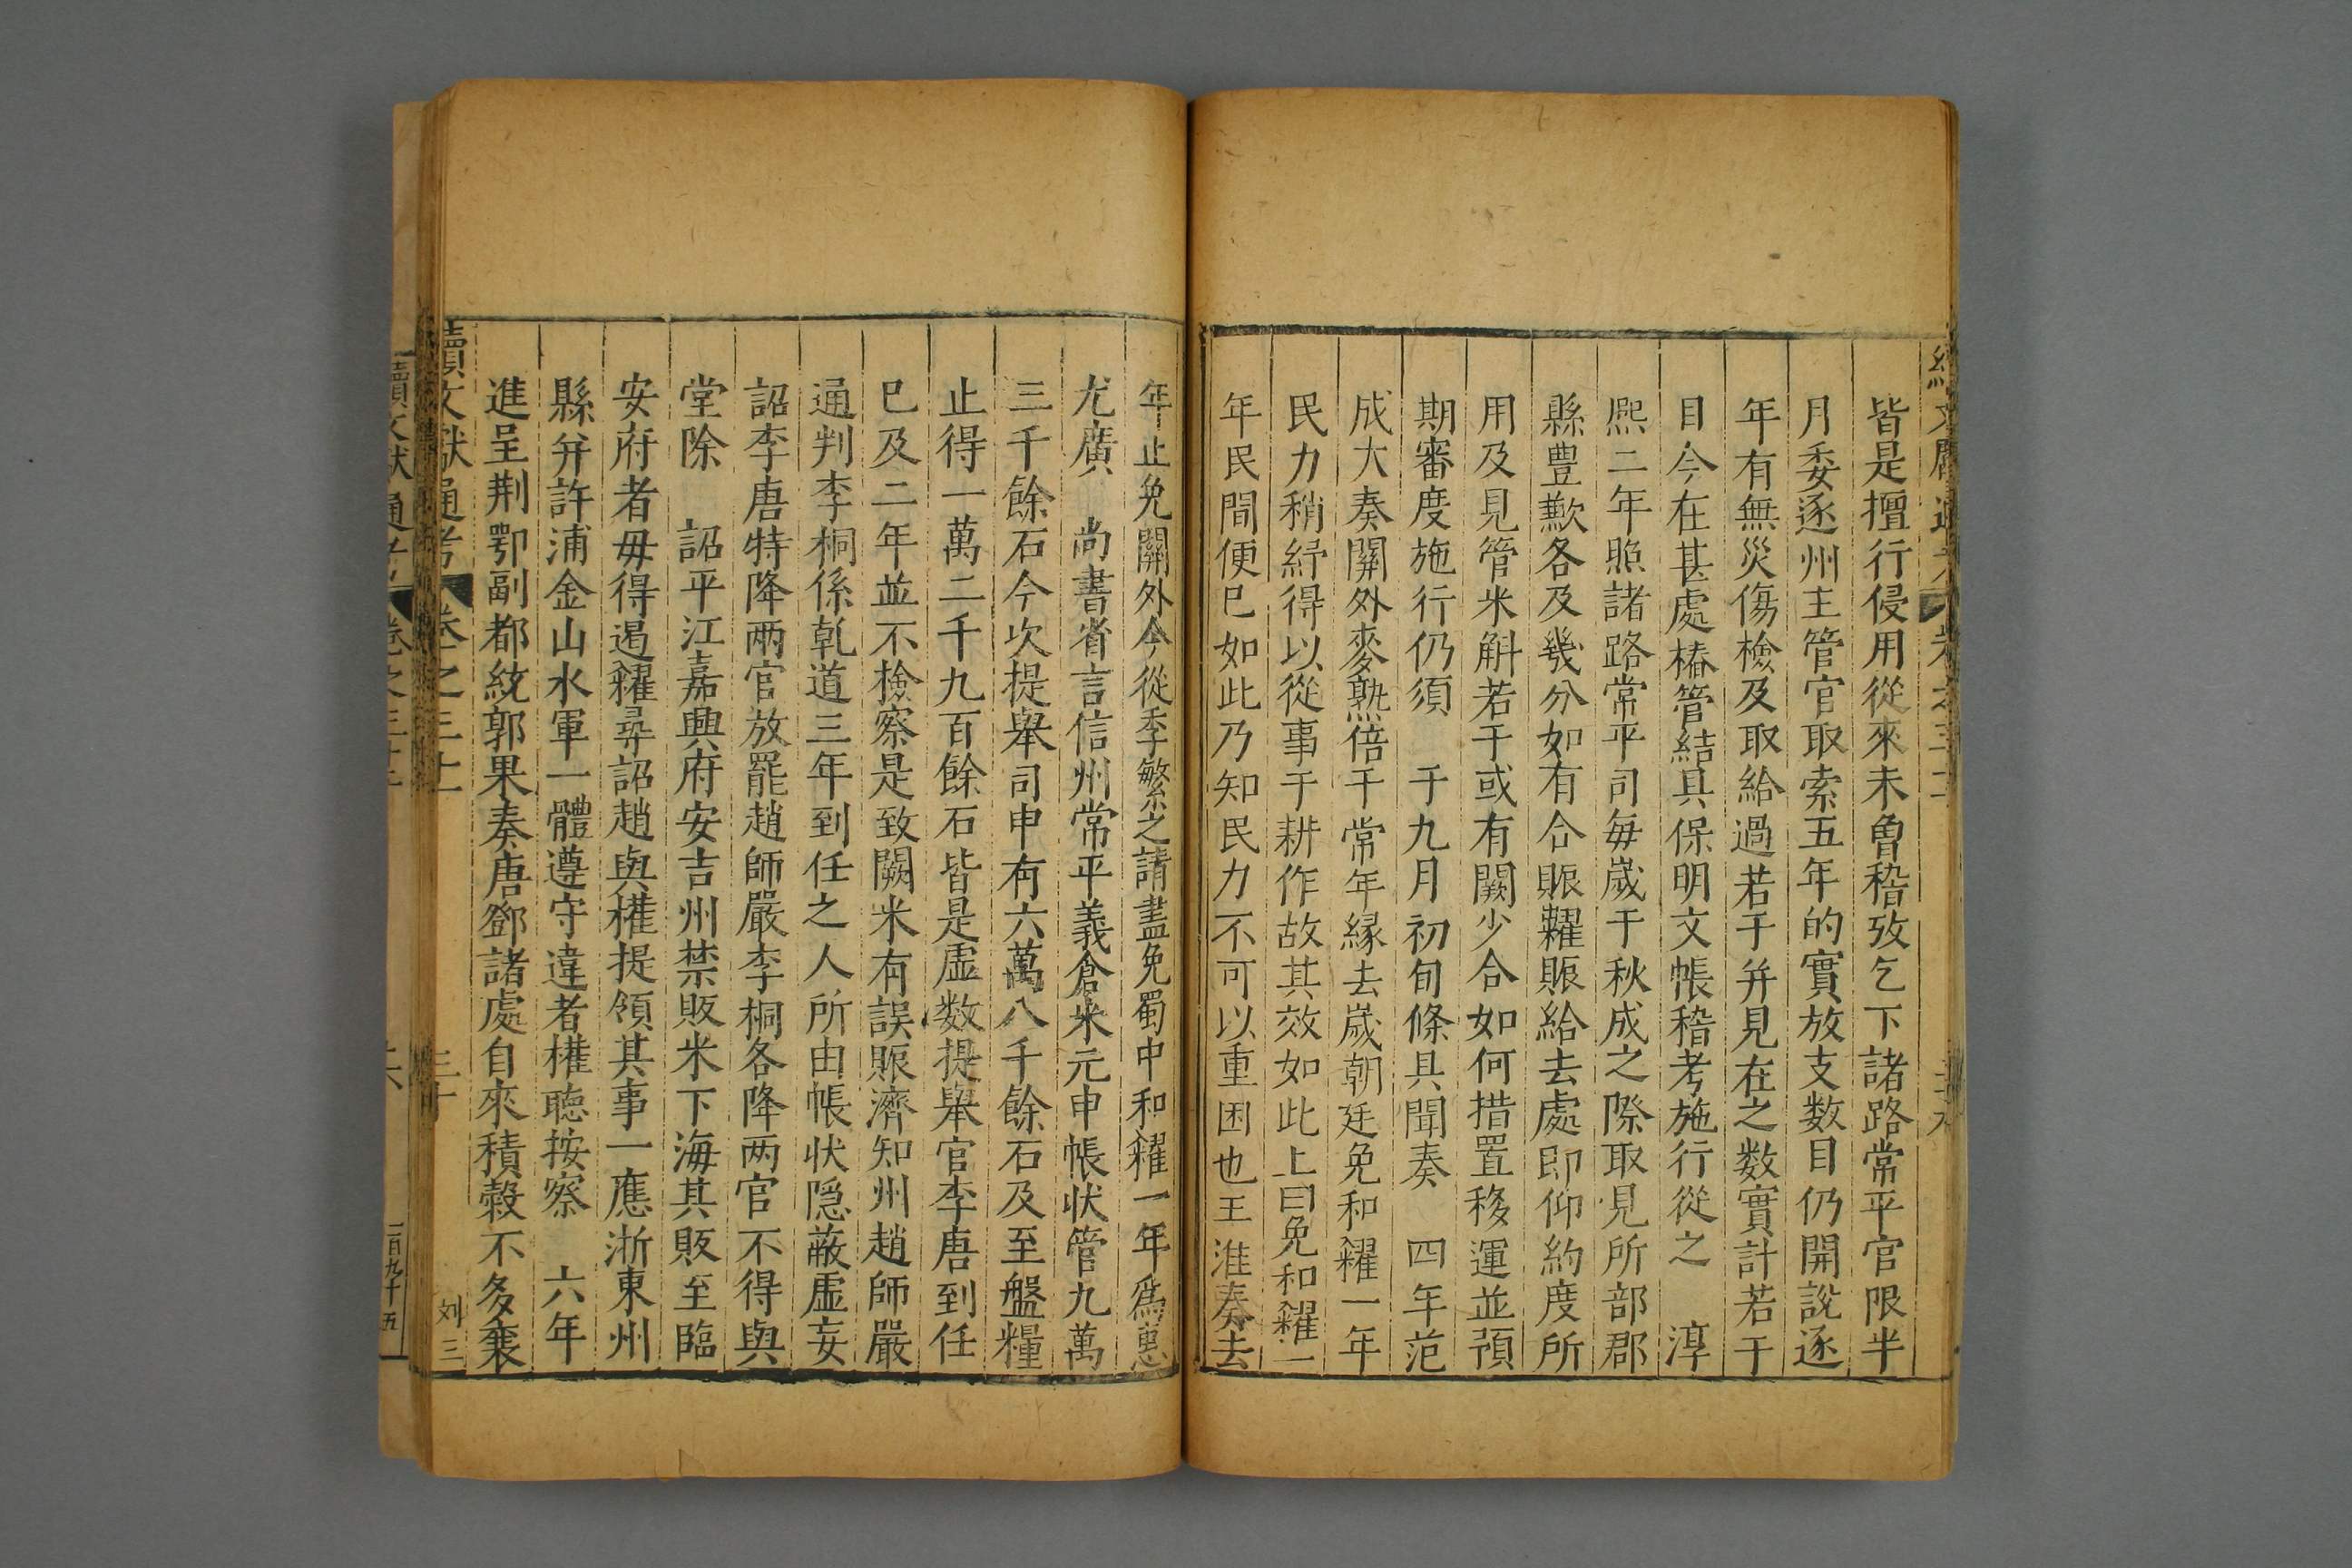 皆是擅行侵用從來未曾稽攷乞下諸路常平官限半
月委逐州主管官取索五年的實放支数目仍開說逐
年有無災傷檢及取給過若干并見在之數實計若干
目今在甚處樁管結具保明文帳稽考施行從之　淳
熈二年照諸路常平司每歲于秋成之際取見所部郡
縣豊歉各及幾分如有合賑糶賑給去處即仰約度所
用及見管米斛若干或有闕少合如何措置移運並預
期審度施行仍須　于九月初旬條具聞奏　四年范
成大奏關外麥熟倍于常年緣去歲朝廷免和糴一年
民力稍紓得以從事于耕作故其效如此上曰免和糴一
年民間便已如此乃知民力不可以重困也王淮奏去
年止免關外今從李繁之請盡免蜀中和糴一年為惠
尤廣　尚書省言信州常平義倉米元申帳状管九萬
三千餘石今次提舉司申有六萬八千餘石及至盤糧
止得一萬二千九百餘石皆是虛数提舉官李唐到任
巳及二年並不檢察是致闕米有誤賑濟知州趙師嚴
通判李桐係乹道三年到任之人所由帳状隱蔽虛妄
詔李唐特降兩官放罷趙師嚴李桐各降两官不得與
堂除　詔平江嘉興府安吉州禁販米下海其販至臨
安府者毋得遏糴尋詔趙與權提領其事一應浙東州
縣并許浦金山水軍一體遵守違者權聴按察　六年
進呈荆鄂副都統郭果奏唐鄧諸處自來積穀不多襄
續文獻通考　卷之三十二　三十　刘三
續文獻通考　卷之三十二
二百九十五